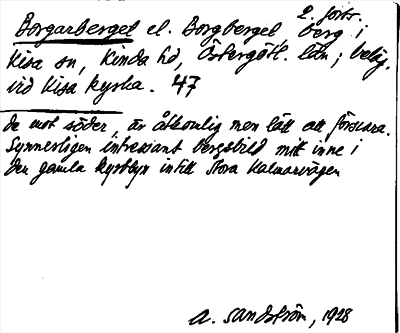 2. forts.
Borgarberget el. Borgberget, berg i
Kisa sn, Kinda hd, Östergötl. län; beläg.
vid Kisa kyrka. 47
de mot söder, är åtkomlig men lätt att försvara.
Synnerligen intressant bergsbild mitt inne i
den gamla kyrkbyn intill Stora Kalmarvägen
A. Sandström, 1928